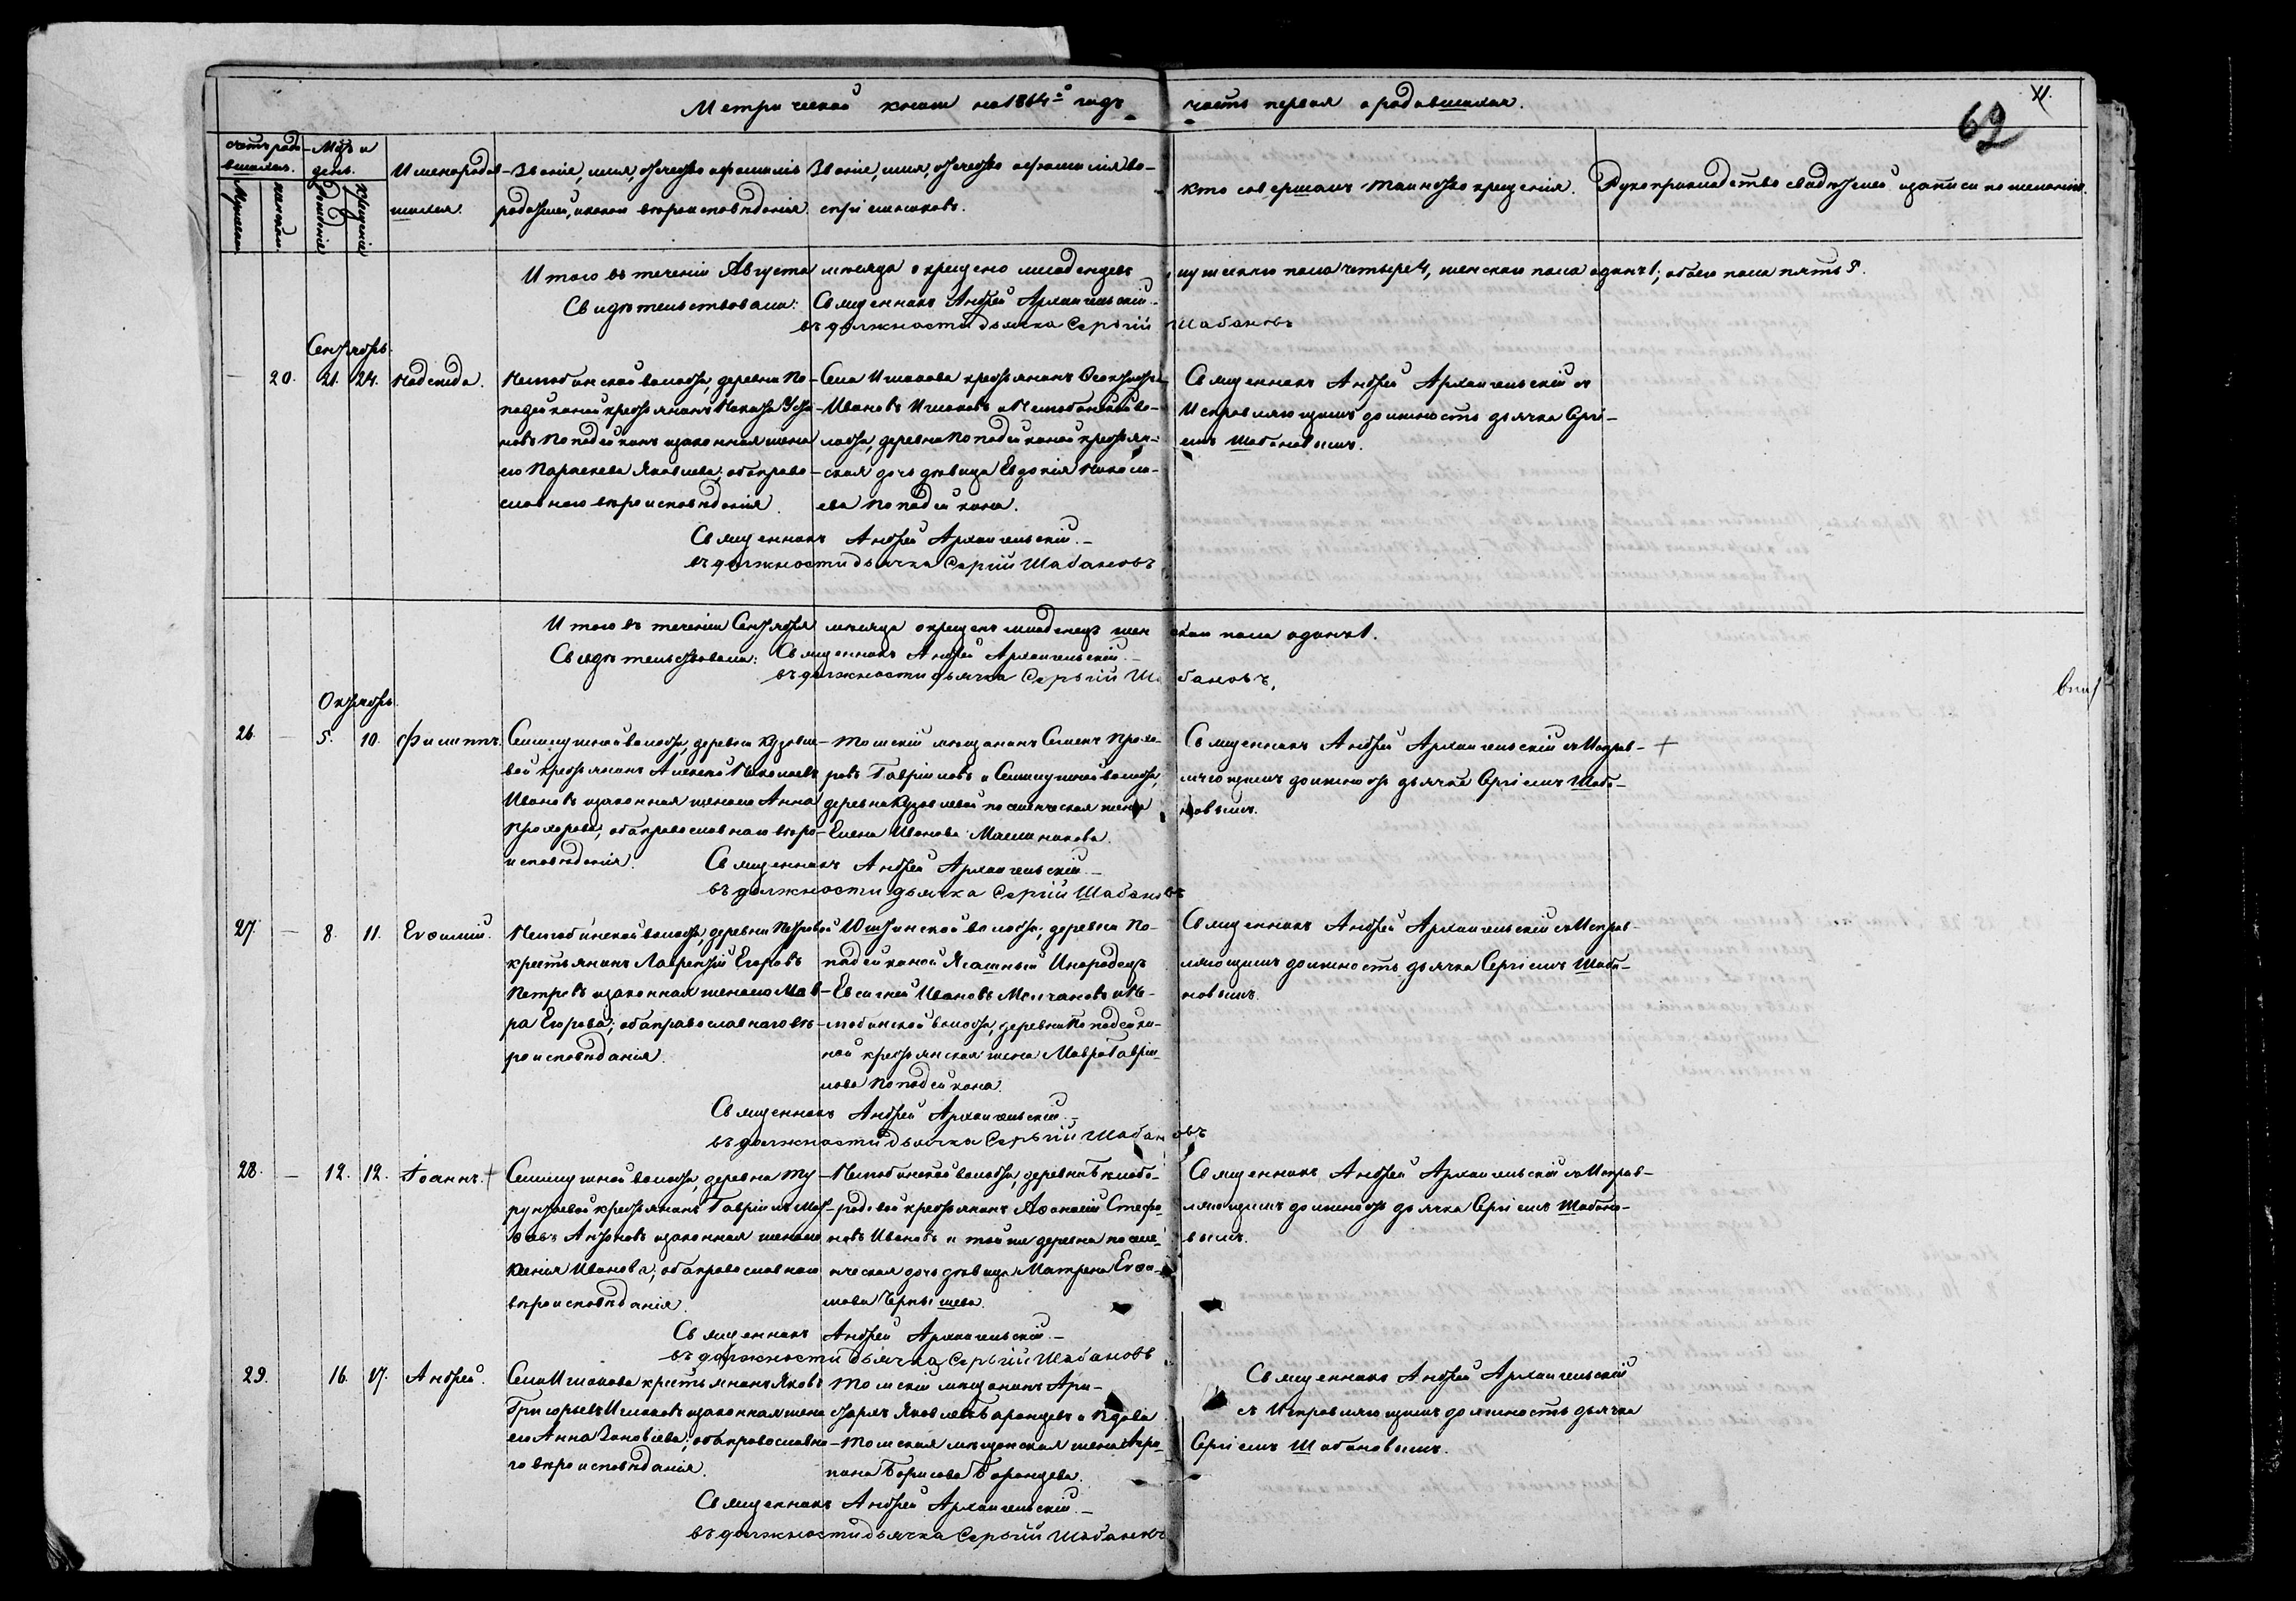 Метрической книги на 1864й годъ часть первая о родившихся.
XI.
69
Счетъ родившихся.
Мѣсяцъ и день.
Имена родившихся.
Званіе, имя, отчество и фамилія родителей, и какого вѣроисповѣданія.
Званіе, имя, отчество и фамилія воспріемниковъ.
Кто совершалъ таинство крещенія.
Рукоприкладство свидѣтелей записи по желанію.
Мужеска
женска.
Рожденія
Крещенія
Итого въ теченіи Августа мѣсяца окрещено младенцевъ мужескаго пола четыре 4, женскаго пола одинъ 1; обоего пола пять 5.
Свидѣтельствовали: Священникъ Андрей Архангельскій
въ должности дьячка Сергій Шабановъ
Сентябрь
— 20. 21. 24. Надежда.
Нелюбинской волости, деревни По-
подейкиной крестьянинъ
новъ Поподейкинъ и законная жена
его Параскева Яковлева, оба право-
славнаго вѣроисповѣданія.
Села Ишакова крестьянинъ
Ивановъ Ишаковъ и Нелюбинской во-
лости, деревни Поподейкиной крестьян-
ская дочь дѣвица Евдокія Никола-
ева Поподейкина.
Священникъ Андрей Архангельскій и
Исправляющимъ должность дьячка Сергі-
емъ Шабановымъ.
Священникъ Андрей Архангельскій
въ должности дьячка Сергій Шабановъ
Итого въ теченіи Сентября мѣсяца окрещенъ младенецъ женскаго пола одинъ 1.
Свидѣтельствовали: Священникъ Андрей Архангельскій
въ должности дьячка Сергій Шабановъ,
Октябрь.
26. — 5. 10. Филиппъ.
Семилужной волости, деревни Кузовле-
вой крестьянинъ Алексѣй Николаевъ
Ивановъ и законная жена его Анна
Прохорова, оба православнаго вѣро-
исповѣданія.
Томскій мѣщанинъ Семенъ Прохо-
ровъ Гавриловъ и Семилужной волости,
деревни Кузовлевой поселенческая жена
Елена Иванова Мельникова.
Священникъ Андрей Архангельскій и Исправ- +
ляющимъ должность дьячка Сергіемъ Шаба-
новымъ.
Священникъ Андрей Архангельскій
въ должности дьячка Сергій Шабановъ
27. — 8. 11. Евѳимій.
Нелюбинской волости, деревни Петровой
крестьянинъ Лаврентій Егоровъ
Петровъ и законная жена его Мав-
ра Егорова; оба православнаго вѣ-
роисповѣданія.
волости, деревни По-
падейкиной Ясашный Инородецъ
Евсигней Ивановъ Молчановъ и Не-
любинской волости, деревни Поподейки-
ной крестьянская жена Мавра Гаври-
лова Поподейкина.
Священникъ Андрей Архангельскій и Исправ-
ляющимъ должность дьячка Сергіемъ Шаба-
новымъ.
Священникъ Андрей Архангельскій
въ должности дьячка Сергій Шабановъ
28. — 12. 12. Іоаннъ. +
Семилужной волости, деревни Ту-
рунтаевой крестьянинъ Гавріилъ Мат-
ѳѣевъ Антоновъ и законная жена его
Ксенія Иванова, оба православнаго
вѣроисповѣданія.
Нелюбинской волости, деревни Бѣлобо-
родовой крестьянинъ Аѳанасій Стефа-
новъ Ивановъ и той же деревни поселен-
ческая дочь дѣвица Матрена Евѳи-
мова Чернышева.
Священникъ Андрей Архангельскій и Исправ-
ляющимъ должность дьячка Сергіемъ Шабано-
вымъ.
Священникъ Андрей Архангельскій
въ должности дьячка Сергій Шабановъ
29. 16. 17. Андрей.
Села Ишакова крестьянинъ Яковъ
Григорьевъ Ишаковъ и законная жена
его Анна Зиновіева; оба православна-
го вѣроисповѣданія.
Томскій мѣщанинъ Ари-
стархъ Яковлевъ Баранцевъ и Вдова
Томская мѣщанская жена Агра-
пина Борисова Баранцева.
Священникъ Андрей Архангельскій
съ Исправляющимъ должность дьячка
Сергіемъ Шабановымъ.
Священникъ Андрей Архангельскій
въ должности дьячка Сергій Шабановъ